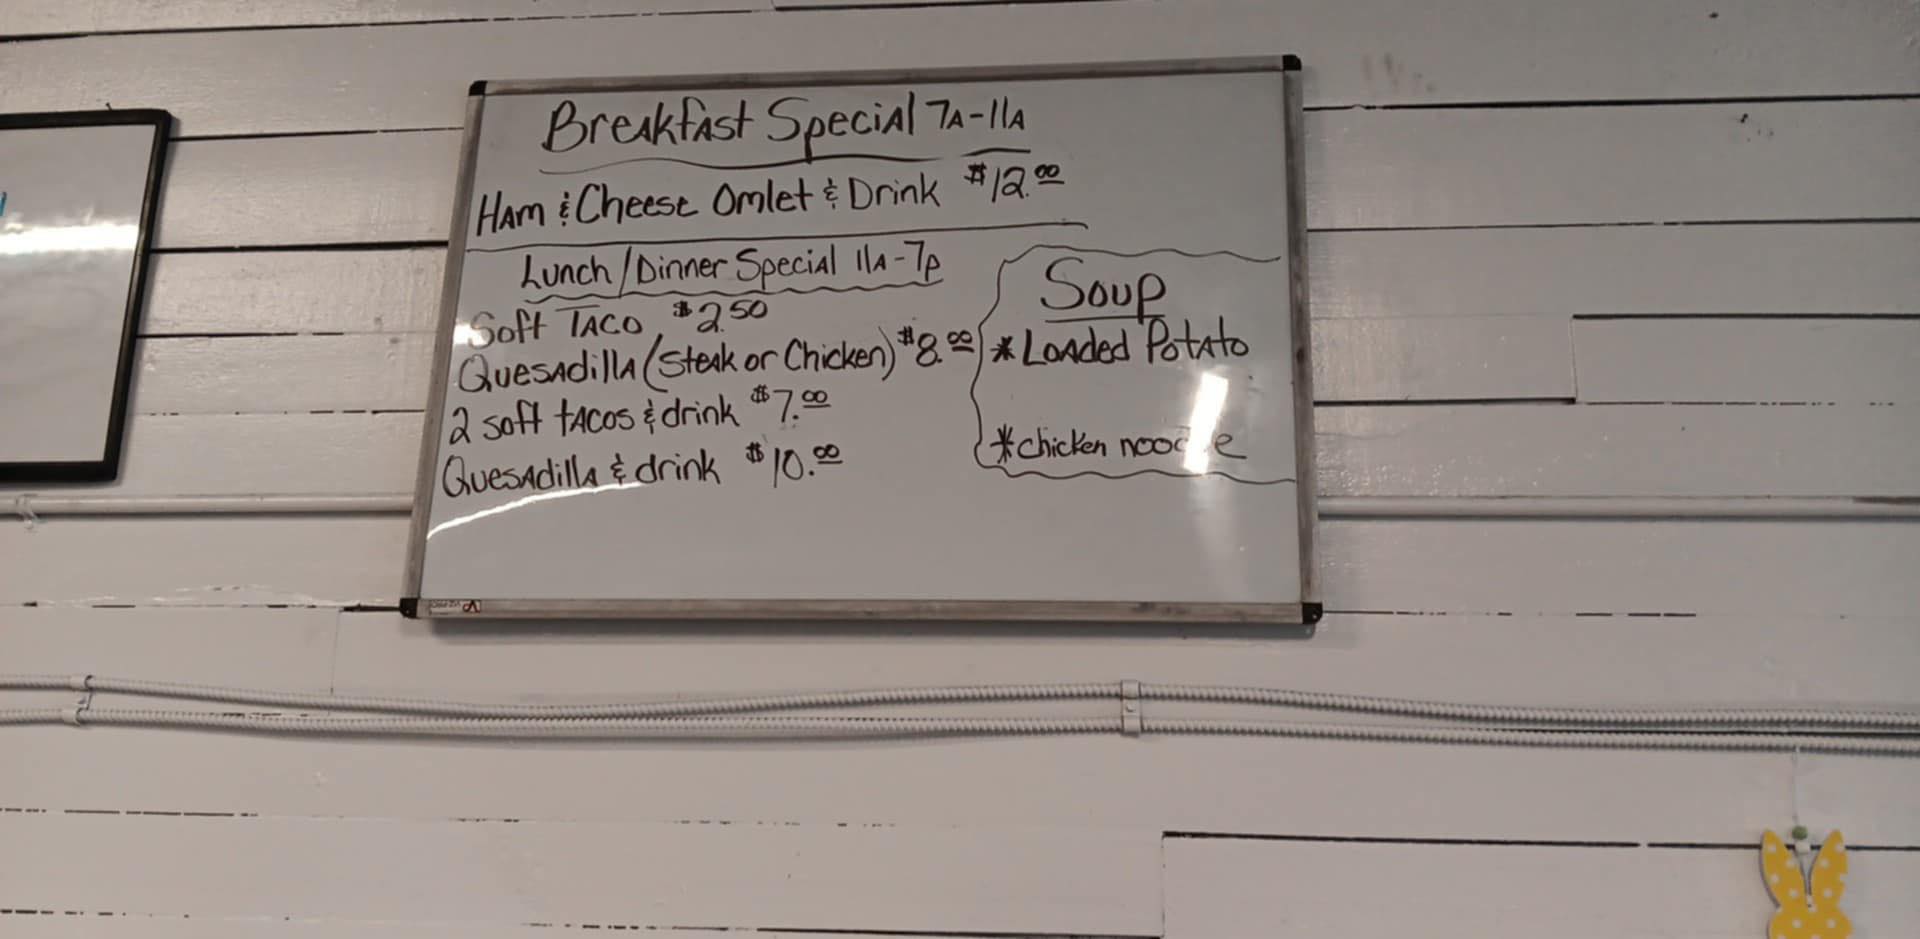 Breakfast Special 7A-11A
Ham & Cheese Omlet & Drink $12.00
Lunch/Dinner Special 11A-7p
Soft Taco $2.50
Quesadilla (Steak or Chicken) $8.00
2 soft tacos & drink $7.00
Quesadilla & drink $10.00
Soup
* Loaded Potato
* chicken noodle